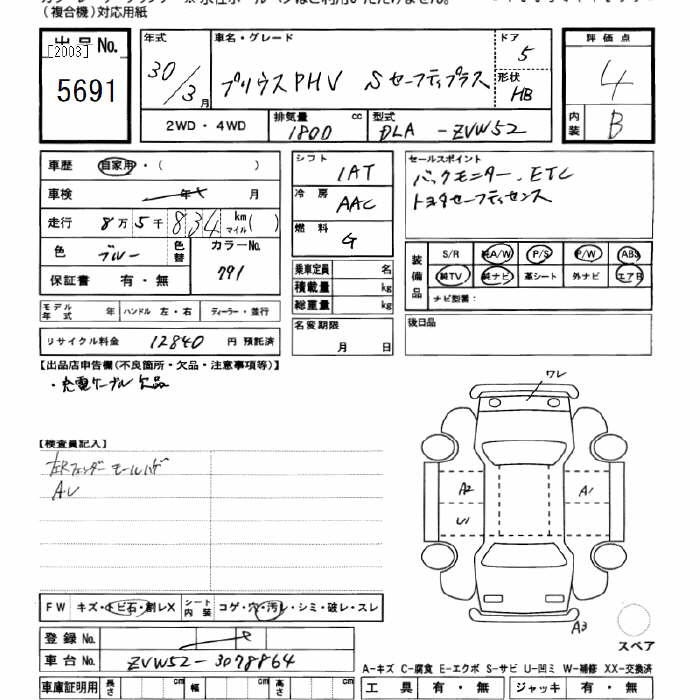 (複合機)対応用紙
出品No. [2003] 5691
年式 30/3月
車名・グレード プリウスPHV Sセーフティプラス
ドア 5
形状 HB
評価点 4
内装 B
2WD・4WD
排気量 1800 cc
型式 DLA-ZVW52
車歴 自家用・( )
車検 年 月
走行 8万5千834km(マイル)
色 ブルー 色替 カラーNo. 791
保証書 有・無
モデル年式 年 ハンドル 左・右 ディーラー・並行
リサイクル料金 12840 円 預託済
シフト IAT
冷房 AAC
燃料 G
乗車定員 名
積載量 kg
総重量 kg
名変期限 月 日
セールスポイント
バックモニター、ETC
トヨタセーフティセンス
装備品 S/R 純A/W P/S P/W ABS
純TV 純ナビ 革シート 外ナビ エアB
ナビ型番:
後日品
【出品店申告欄(不良箇所・欠品・注意事項等)】
・充電ケーブル欠品
【検査員記入】
左Rフェンダーモールハゲ
AU
ワレ
A2 A1
U1
A3
スペア
FW キズ・トビ石・割レX シート内装 コゲ・穴・汚レ・シミ・破レ・スレ
登録No.
車台No. ZVW52-3078864
A-キズ C-腐食 E-エクボ S-サビ U-凹ミ W-補修 XX-交換済
車庫証明用 長さ cm 幅 cm 高さ cm
工具 有・無 ジャッキ 有・無